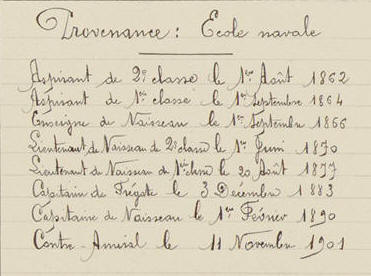 Provenance : Ecole navale
Aspirant de 2e classe le 1er Août 1862
Aspirant de 1ère classe le 1er Septembre 1864
Enseigne de Vaisseau le 1er Septembre 1866
Lieutenant de Vaisseau de 2e classe le 1er Juin 1870
Lieutenant de Vaisseau de 1ère classe le 20 Août 1877
Capitaine de Frégate le 3 Décembre 1883
Capitaine de Vaisseau le 1er Février 1890
Contre-Amiral le 11 Novembre 1901